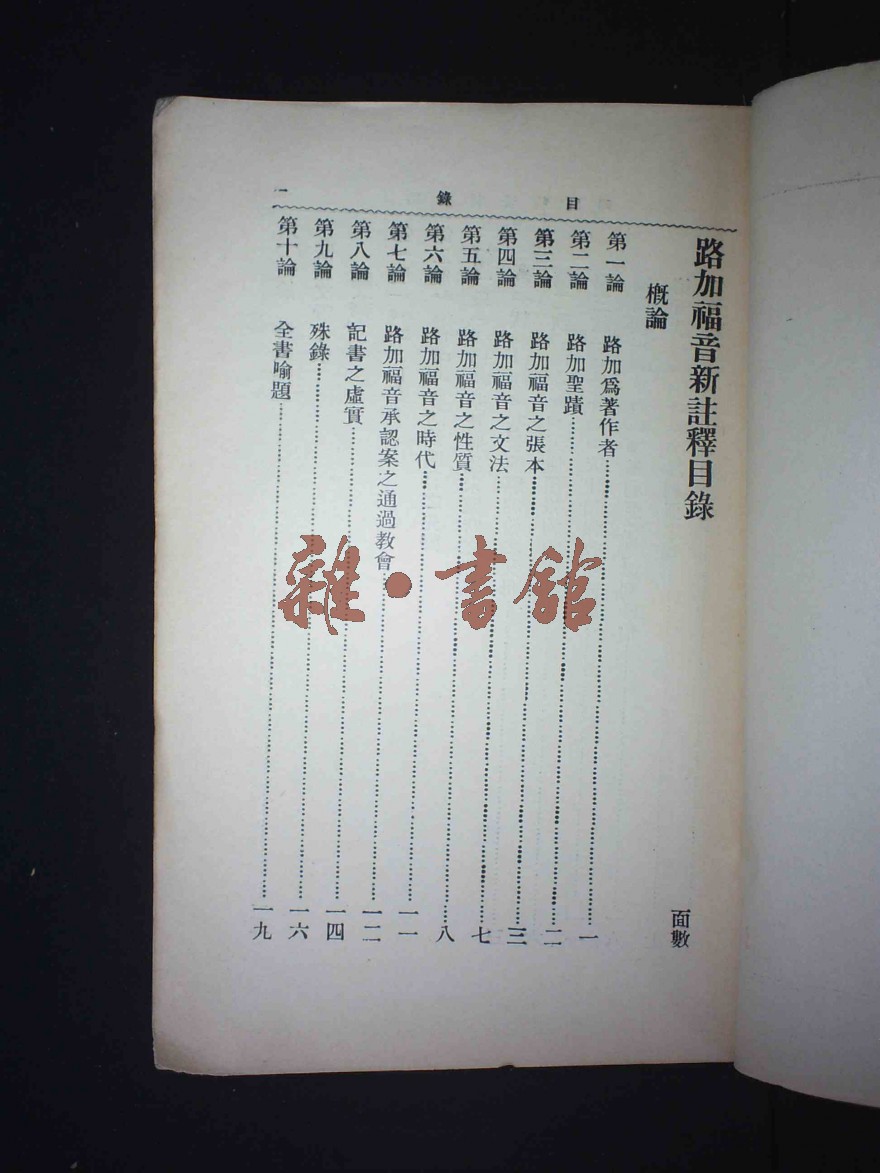 目錄 一
路加福音新註釋目錄
概論 面數
第一論 路加爲著作者 一
第二論 路加聖蹟 二
第三論 路加福音之張本 三
第四論 路加福音之文法 七
第五論 路加福音之性質 八
第六論 路加福音之時代 一一
第七論 路加福音承認案之通過教會 一二
第八論 記書之虛實 一四
第九論 殊錄 一六
第十論 全書喻題 一九
雜·書館